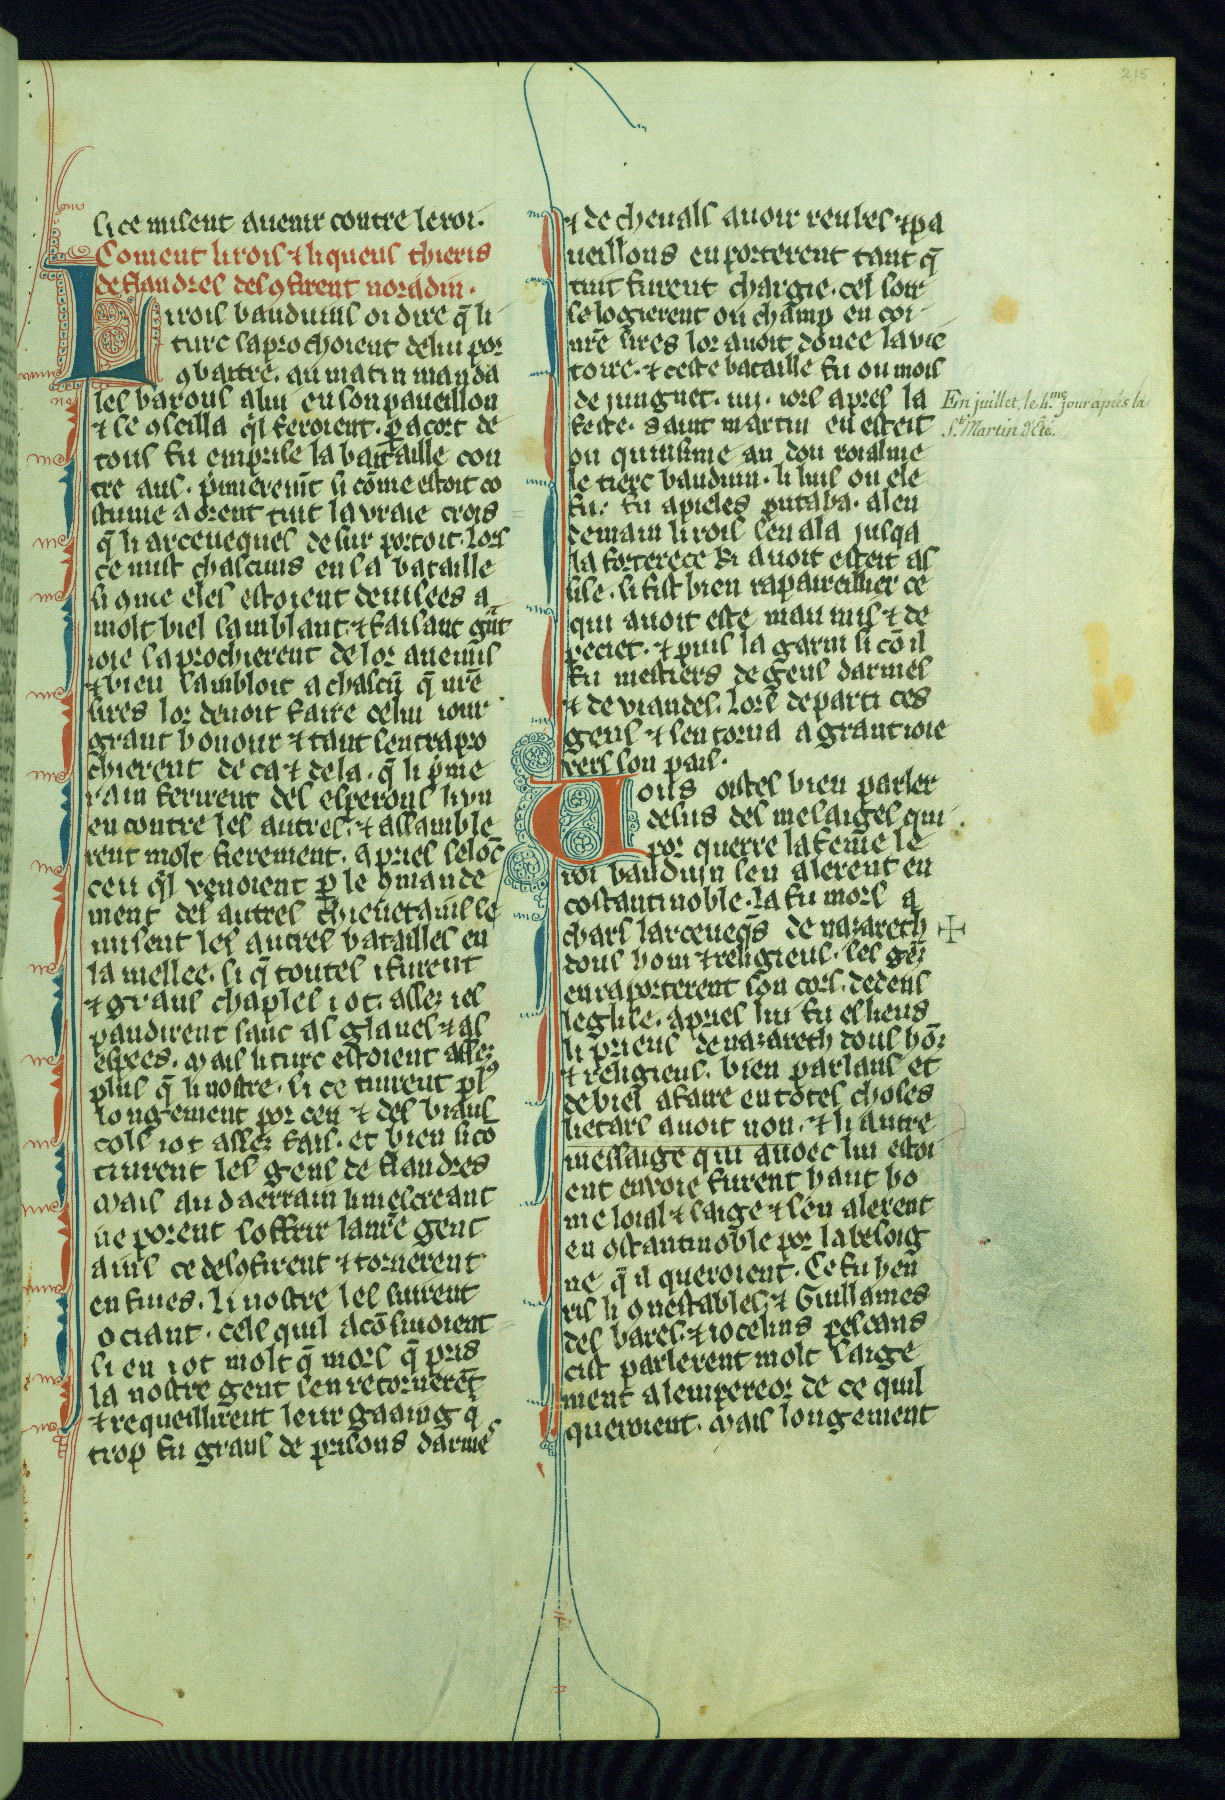 215
si ce misent auenir contre le roi.
Coment li rois ⁊ li queus thieris
de flandres desꝯfirent noradin.
Li rois bauduins oi dire q̄ li
turc saprochoient de lui por
ꝯbattre. au matin manda
ses barons a lui en son paueillon
⁊ se ꝯseilla q̓l feroient. ꝑ acort de
tous fu emprise la bataille con
tre aus. p̓mierem̄t si cōme estoit co
stume aorent tuit la vraie crois
q̄ li arceueques de sur portoit. Lors
ce mist chascuns en sa bataille
si ꝯme eles estoient deuisees a
molt biel samblant ⁊ faisant gūt
ioie saprochierent de lor anemis
⁊ bien sambloit a chascū q̄ nr̄e
sires lor deuoit faire celui iour
grant honour ⁊ tant sentrapro
chierent de ca ⁊ de la. q̄ li p̓me
rain ferirent des esperons li vn
encontre les autres. ⁊ assamble
rent molt fierement. apries seloc
ceu q̓l venoient ꝑ le ꝯmande
ment des autres chieuetains se
misent les autres batailles en
la mellee. si q̄ toutes i furent
⁊ grans chaples i ot. assez i es
pandirent sanc as glaues ⁊ as
espees. Mais li turc estoient assez
plus q̄ li nostre. si ce tinrent plꝰ
longement por ceu ⁊ des biaus
cols i ot assez fais. et bien si cō
tinrent les gens de flandres
Mais au daerrain li mescreant
ne porent soffrir la nr̄e gent
ains ce desꝯfirent ⁊ tornerent
en fuies. li nostre les suirent
ociant. cels quil acōsiuoient
si en i ot molt q̄ mors q̄ pris
la nostre gent sen retornerēt
⁊ requeillirent leur gaaing q̓
trop fu grans de prisons darmes
⁊ de cheuals auoir reubes ⁊ pa
ueillons en porterent tant q̄
tuit furent chargie. cel soir
se logierent ou champ en coi
nr̄e sires lor auoit donee la vic
toire. ⁊ ceste bataille fu ou mois
de junguet. iiij. iors apres la
feste. saint martin en esteit
ou quinsime an dou roialme
le tierc bauduin. li luis ou ele
fu. fu apieles putaba. alen
demain li rois sen ala jusqa
la forterece ki auoit esteit as
sise. si fist bien rapaireillier ce
qui auoit este mau mis ⁊ de
peciet. ⁊ puis la garni si cō il
fu mestiers de gens darmes
⁊ de viandes. lors departi ces
gens ⁊ sen torna a grant ioie
vers son pais.
Vous oistes bien parler
desus des mesaiges qui
por querre la feme le
roi bauduin sen alerent en
costantinoble. la fu mors a
chars larceueq̄s de nazareth
dous hom ⁊ religieus. ses gēz
en raporterent son cors. dedens
leglise. apries lui fu eslieus
li prieus de nazareth dous hōz
⁊ religieus. bien parlans et
de biel afaire en totes choses
lietars auoit non. ⁊ li autre
messaige qui auoec lui estoi
ent enuoie furent haut ho
me loial ⁊ saige ⁊ sen alerent
en ꝯstantinoble por la besoig
ne q̄ il queroient. Ce fu hen
ris li ꝯnestables. ⁊ Guillames
des bares. ⁊ iocelins pescans
cist parlerent molt saige
ment a lempereor de ce quil
queroient. Mais longement
En juillet, le 4.me jour après la
S.t Martin d'Eté.